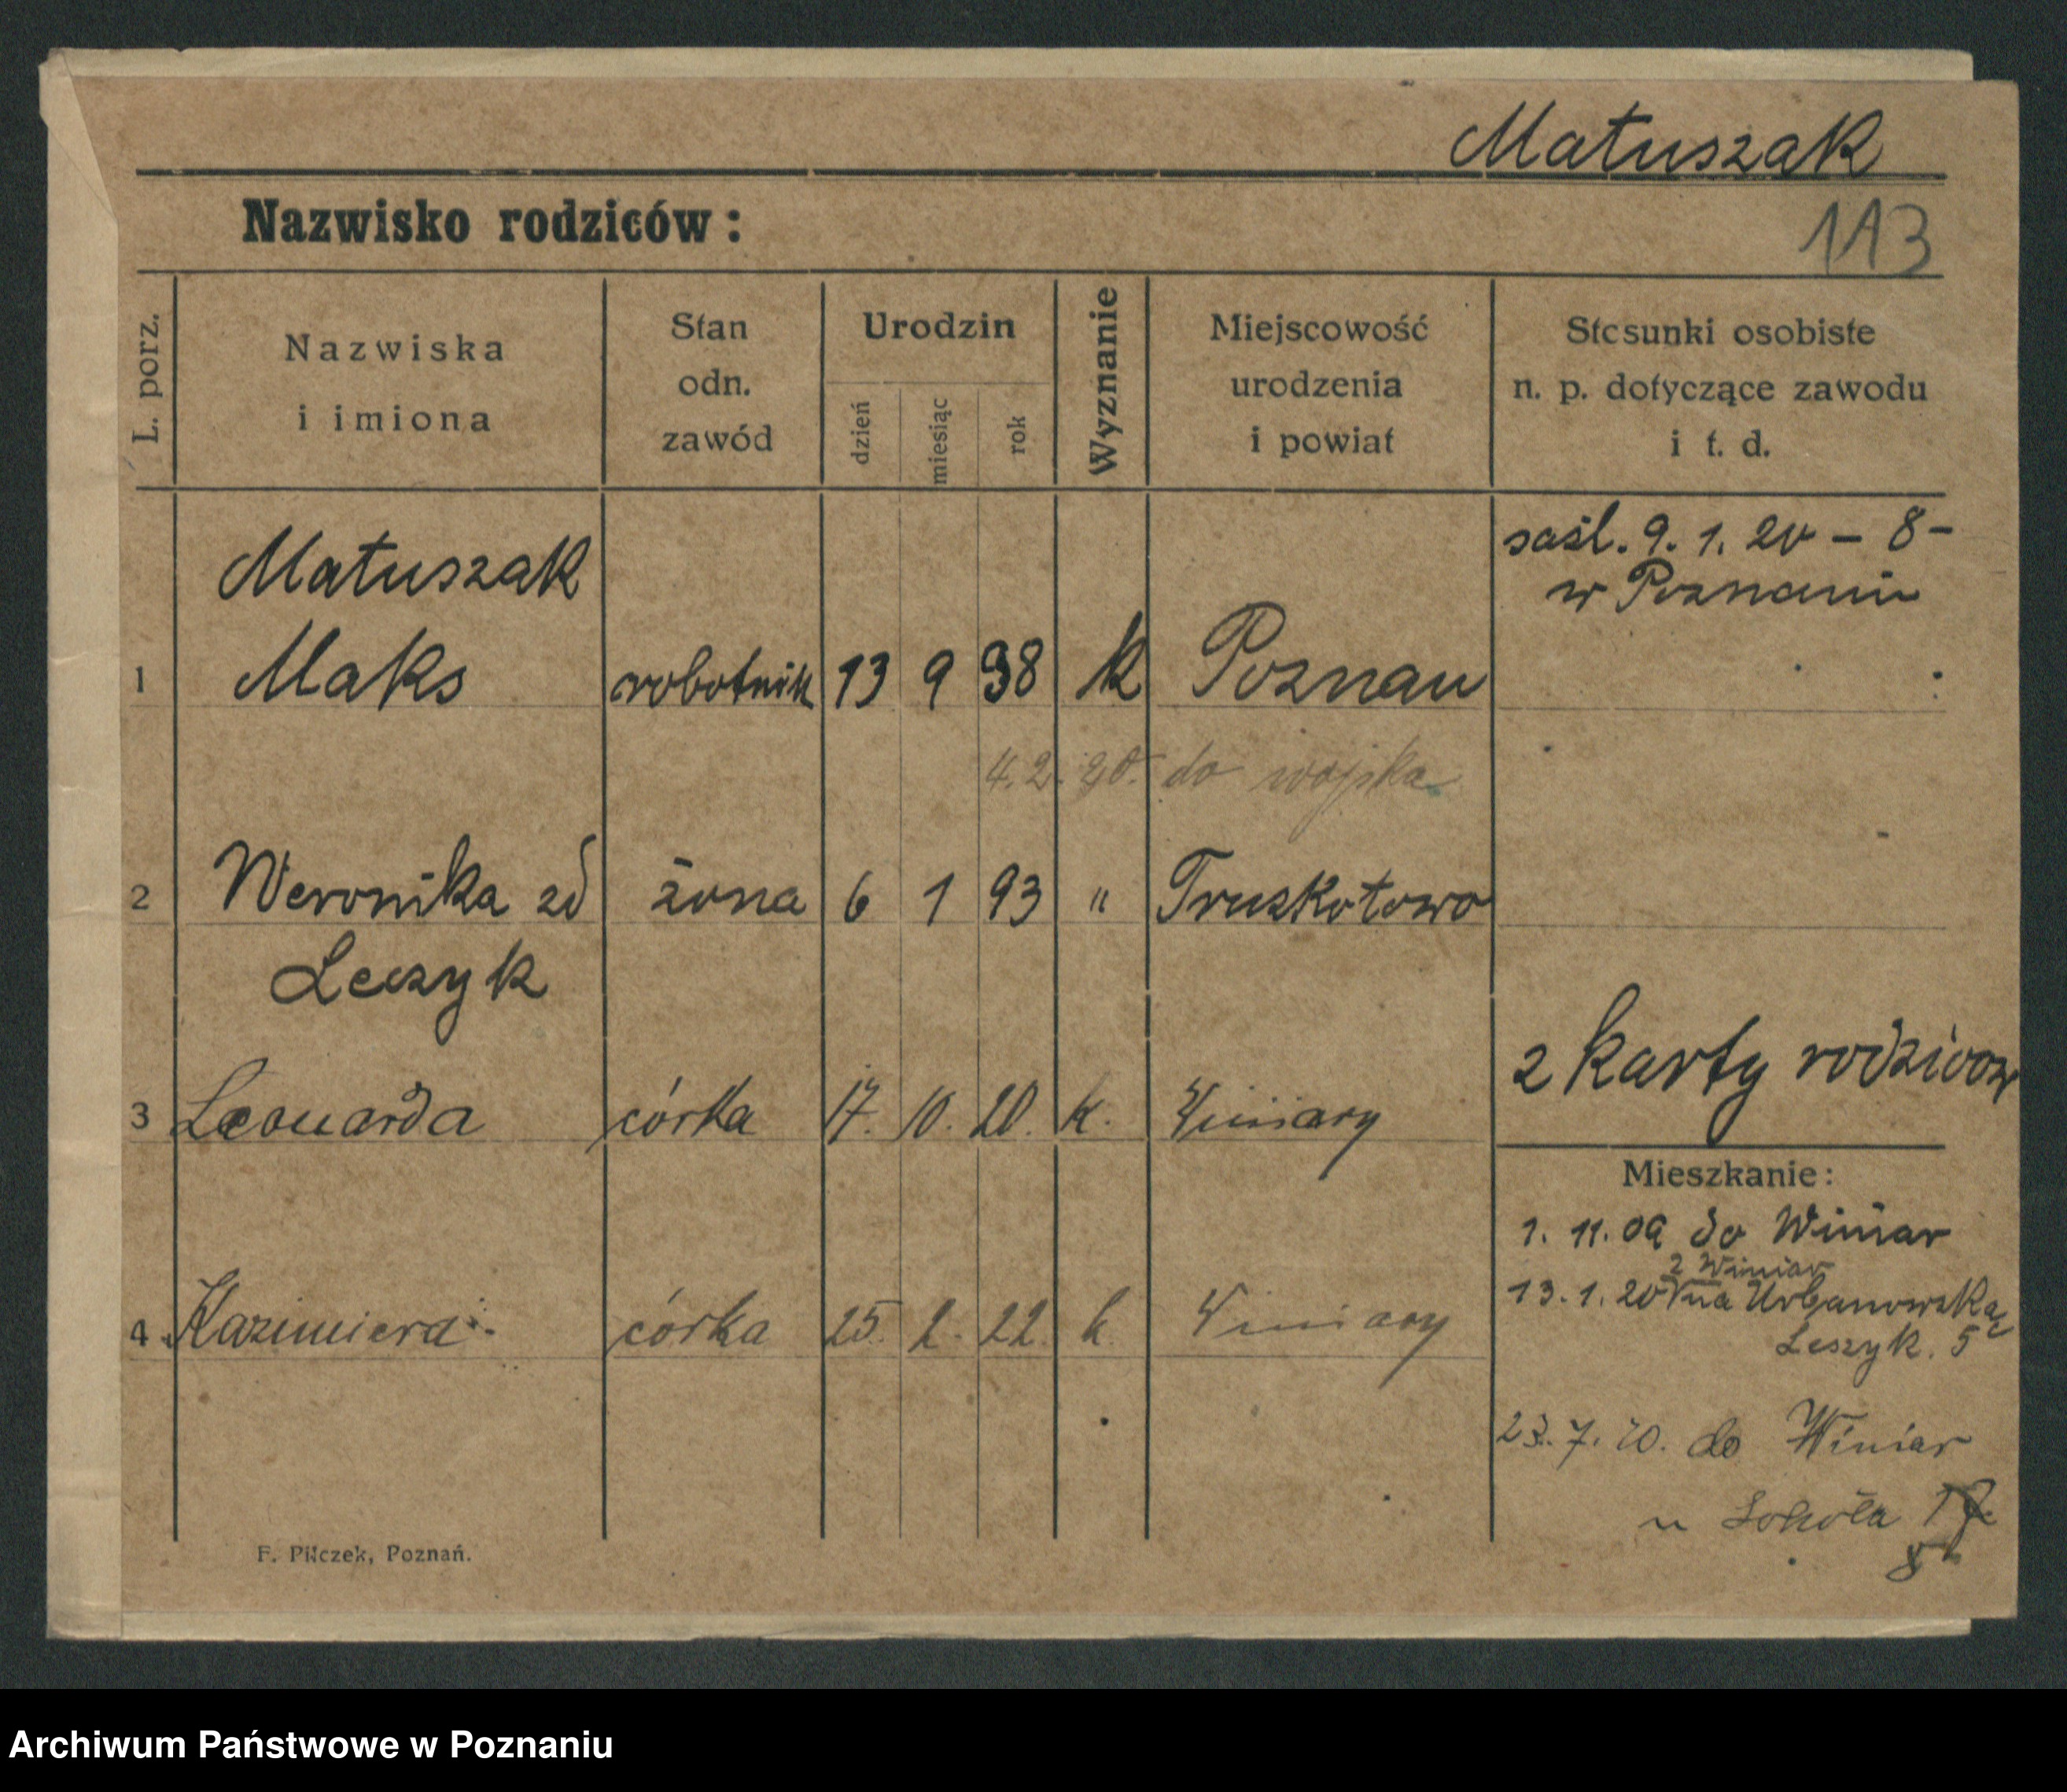 Matuszak
Nazwisko rodziców:
113
L. porz.
Nazwiska
i imiona
Stan
odn.
zawód
Urodzin
dzień
miesiąc
rok
Wyznanie
Miejscowość
urodzenia
i powiat
Stosunki osobiste
n. p. dotyczące zawodu
i t. d.
saśl. 9. 1. 20 – 8 –
w Poznaniu
Matuszak
1 Maks robotnik 13 9 98 k Poznań
4. 2. 20. do wojska
2 Weronika zd żona 6 1 93 " Truskotowo
Leszyk
2 karty rodziców
3 Leonarda córka 17. 10. 20. k. Winiary
Mieszkanie:
1. 11. 09 do Winiar
z Winiar
13. 1. 20 na Urbanowską
Leszyk. 5
4 Kazimiera córka 25. 2. 22 k. Winiary
23. 7. 20. do Winiar
u Sokoła 17
F. Pilczek, Poznań.
Archiwum Państwowe w Poznaniu